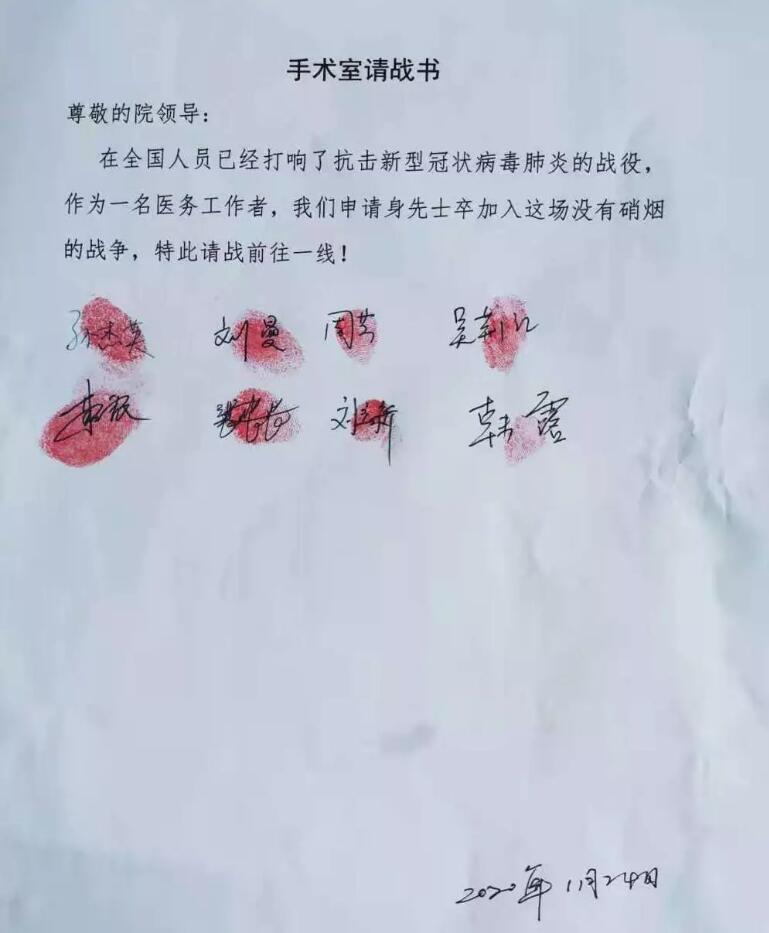 手术室请战书
尊敬的院领导：
在全国人员已经打响了抗击新型冠状病毒肺炎的战役，
作为一名医务工作者，我们申请身先士卒加入这场没有硝烟
的战争，特此请战前往一线！
刘曼 周芸
韩露
2020年11月24日